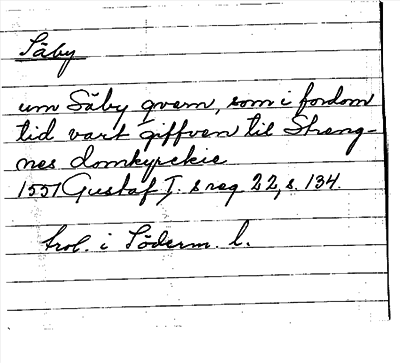 Säby
um Säby qvern, som i fordom
tid vart giffven til Streng-
nes domkyrckie
1551 Gustaf I. s reg. 22, s. 134.
trol. i Söderm. l.